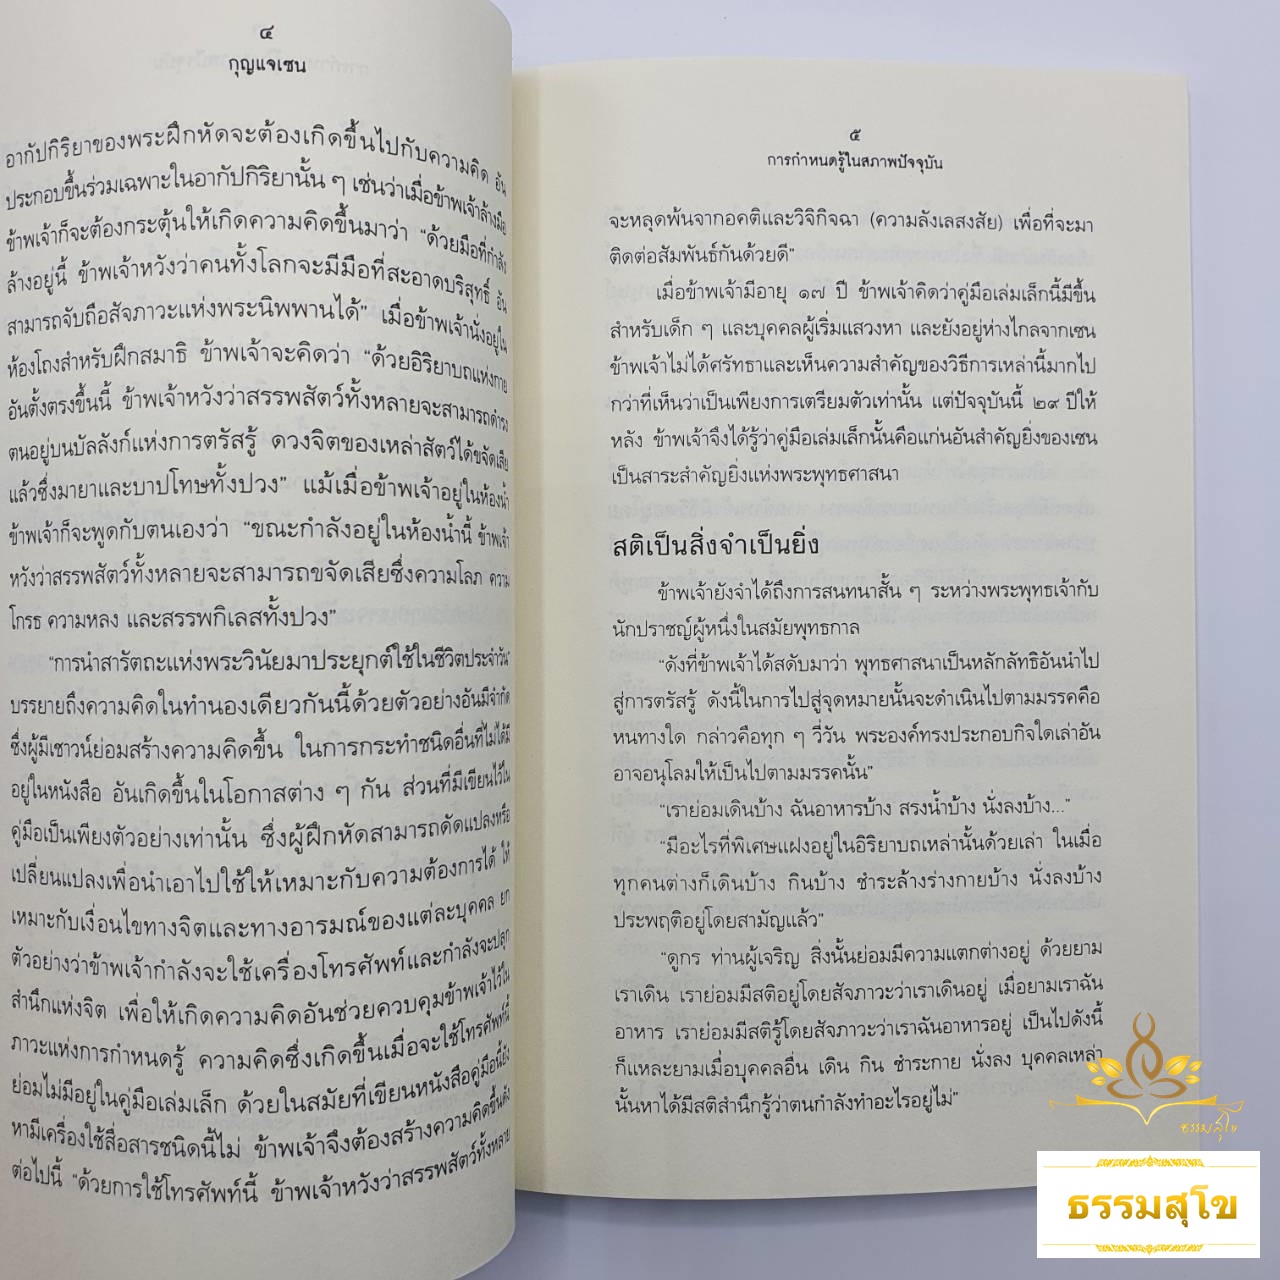 ๔
กุญแจเซน
อากัปกิริยาของพระฝึกหัดจะต้องเกิดขึ้นไปกับความคิด อัน
ประกอบขึ้นร่วมเฉพาะในอากัปกิริยานั้น ๆ เช่นว่าเมื่อข้าพเจ้าล้างมือ
ข้าพเจ้าก็จะต้องกระตุ้นให้เกิดความคิดขึ้นมาว่า “ด้วยมือที่กำลัง
ล้างอยู่นี้ ข้าพเจ้าหวังว่าคนทั้งโลกจะมีมือที่สะอาดบริสุทธิ์ อัน
สามารถจับถือสัจภาวะแห่งพระนิพพานได้” เมื่อข้าพเจ้านั่งอยู่ใน
ห้องโถงสำหรับฝึกสมาธิ ข้าพเจ้าจะคิดว่า “ด้วยอิริยาบถแห่งกาย
อันตั้งตรงขึ้นนี้ ข้าพเจ้าหวังว่าสรรพสัตว์ทั้งหลายจะสามารถดำรง
ตนอยู่บนบัลลังก์แห่งการตรัสรู้ ดวงจิตของเหล่าสัตว์ได้ขจัดเสีย
แล้วซึ่งมายาและบาปโทษทั้งปวง” แม้เมื่อข้าพเจ้าอยู่ในห้องน้ำ
ข้าพเจ้าก็จะพูดกับตนเองว่า “ขณะกำลังอยู่ในห้องน้ำนี้ ข้าพเจ้า
หวังว่าสรรพสัตว์ทั้งหลายจะสามารถขจัดเสียซึ่งความโลภ ความ
โกรธ ความหลง และสรรพกิเลสทั้งปวง”
“การนำสารัตถะแห่งพระวินัยมาประยุกต์ใช้ในชีวิตประจำวัน”
บรรยายถึงความคิดในทำนองเดียวกันนี้ด้วยตัวอย่างอันมีจำกัด
ซึ่งผู้มีเชาวน์ย่อมสร้างความคิดขึ้น ในการกระทำชนิดอื่นที่ไม่ได้มี
อยู่ในหนังสือ อันเกิดขึ้นในโอกาสต่าง ๆ กัน ส่วนที่มีเขียนไว้ใน
คู่มือเป็นเพียงตัวอย่างเท่านั้น ซึ่งผู้ฝึกหัดสามารถดัดแปลงหรือ
เปลี่ยนแปลงเพื่อนำเอาไปใช้ให้เหมาะกับความต้องการได้ ให้
เหมาะกับเงื่อนไขทางจิตและทางอารมณ์ของแต่ละบุคคล ยก
ตัวอย่างว่าข้าพเจ้ากำลังจะใช้เครื่องโทรศัพท์และกำลังจะปลุก
สำนึกแห่งจิต เพื่อให้เกิดความคิดอันช่วยควบคุมข้าพเจ้าไว้ใน
ภาวะแห่งการกำหนดรู้ ความคิดซึ่งเกิดขึ้นเมื่อจะใช้โทรศัพท์นี้
ย่อมไม่มีอยู่ในคู่มือเล่มเล็ก ด้วยในสมัยที่เขียนหนังสือคู่มือนี้ยัง
หามีเครื่องใช้สื่อสารชนิดนี้ไม่ ข้าพเจ้าจึงต้องสร้างความคิดขึ้นดัง
ต่อไปนี้ “ด้วยการใช้โทรศัพท์นี้ ข้าพเจ้าหวังว่าสรรพสัตว์ทั้งหลาย
๕
การกำหนดรู้ในสภาพปัจจุบัน
จะหลุดพ้นจากอคติและวิจิกิจฉา (ความลังเลสงสัย) เพื่อที่จะมา
ติดต่อสัมพันธ์กันด้วยดี”
เมื่อข้าพเจ้ามีอายุ ๑๗ ปี ข้าพเจ้าคิดว่าคู่มือเล่มเล็กนี้มีขึ้น
สำหรับเด็ก ๆ และบุคคลผู้เริ่มแสวงหา และยังอยู่ห่างไกลจากเซน
ข้าพเจ้าไม่ได้ศรัทธาและเห็นความสำคัญของวิธีการเหล่านี้มากไป
กว่าที่เห็นว่าเป็นเพียงการเตรียมตัวเท่านั้น แต่ปัจจุบันนี้ ๒๙ ปีให้
หลัง ข้าพเจ้าจึงได้รู้ว่าคู่มือเล่มเล็กนั้นคือแก่นอันสำคัญยิ่งของเซน
เป็นสาระสำคัญยิ่งแห่งพระพุทธศาสนา
สติเป็นสิ่งจำเป็นยิ่ง
ข้าพเจ้ายังจำได้ถึงการสนทนาสั้น ๆ ระหว่างพระพุทธเจ้ากับ
นักปราชญ์ผู้หนึ่งในสมัยพุทธกาล
“ดังที่ข้าพเจ้าได้สดับมาว่า พุทธศาสนาเป็นหลักลัทธิอันนำไป
สู่การตรัสรู้ ดังนี้ในการไปสู่จุดหมายนั้นจะดำเนินไปตามมรรคคือ
หนทางใด กล่าวคือทุก ๆ วี่วัน พระองค์ทรงประกอบกิจใดเล่าอัน
อาจอนุโลมให้เป็นไปตามมรรคนั้น”
“เราย่อมเดินบ้าง ฉันอาหารบ้าง สรงน้ำบ้าง นั่งลงบ้าง...”
“มีอะไรที่พิเศษแฝงอยู่ในอิริยาบถเหล่านั้นด้วยเล่า ในเมื่อ
ทุกคนต่างก็เดินบ้าง กินบ้าง ชำระล้างร่างกายบ้าง นั่งลงบ้าง
ประพฤติอยู่โดยสามัญแล้ว”
“ดูกร ท่านผู้เจริญ สิ่งนั้นย่อมมีความแตกต่างอยู่ ด้วยยาม
เราเดิน เราย่อมมีสติอยู่โดยสัจภาวะว่าเราเดินอยู่ เมื่อยามเราฉัน
อาหาร เราย่อมมีสติรู้โดยสัจภาวะว่าเราฉันอาหารอยู่ เป็นไปดังนี้
ก็แหละยามเมื่อบุคคลอื่น เดิน กิน ชำระกาย นั่งลง บุคคลเหล่า
นั้นหาได้มีสติสำนึกรู้ว่าตนกำลังทำอะไรอยู่ไม่”
ธรรมสุโข
ธรรมสุโข